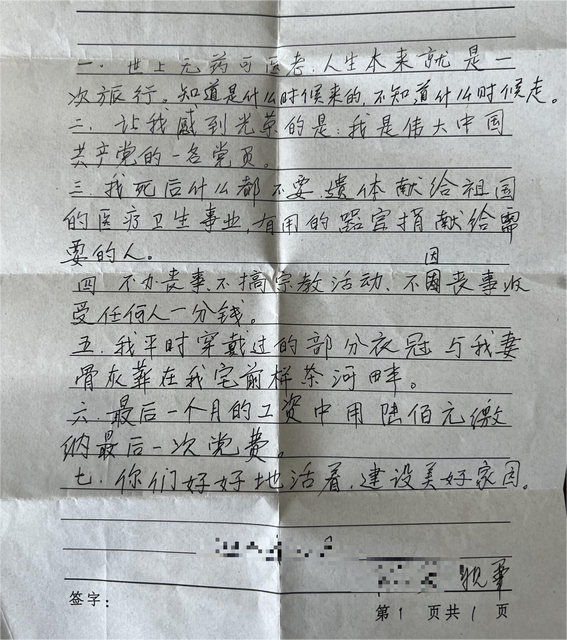 一. 世上无药可医老, 人生本来就是一
次旅行。知道是什么时候来的, 不知道什么时候走。
二. 让我感到光荣的是: 我是伟大中国
共产党的一名党员。
三. 我死后什么都不要, 遗体献给祖国
的医疗卫生事业, 有用的器官捐献给需
要的人。
因
四 不办丧事, 不搞宗教活动, 不丧事收
受任何人一分钱。
五. 我平时穿戴过的部分衣冠与我妻
骨灰葬在我宅前样茶河畔。
六. 最后一个月的工资中用陆佰元缴
纳最后一次党费。
七. 你们好好地活着, 建设美好家园。
签字:
第 1 页共 1 页